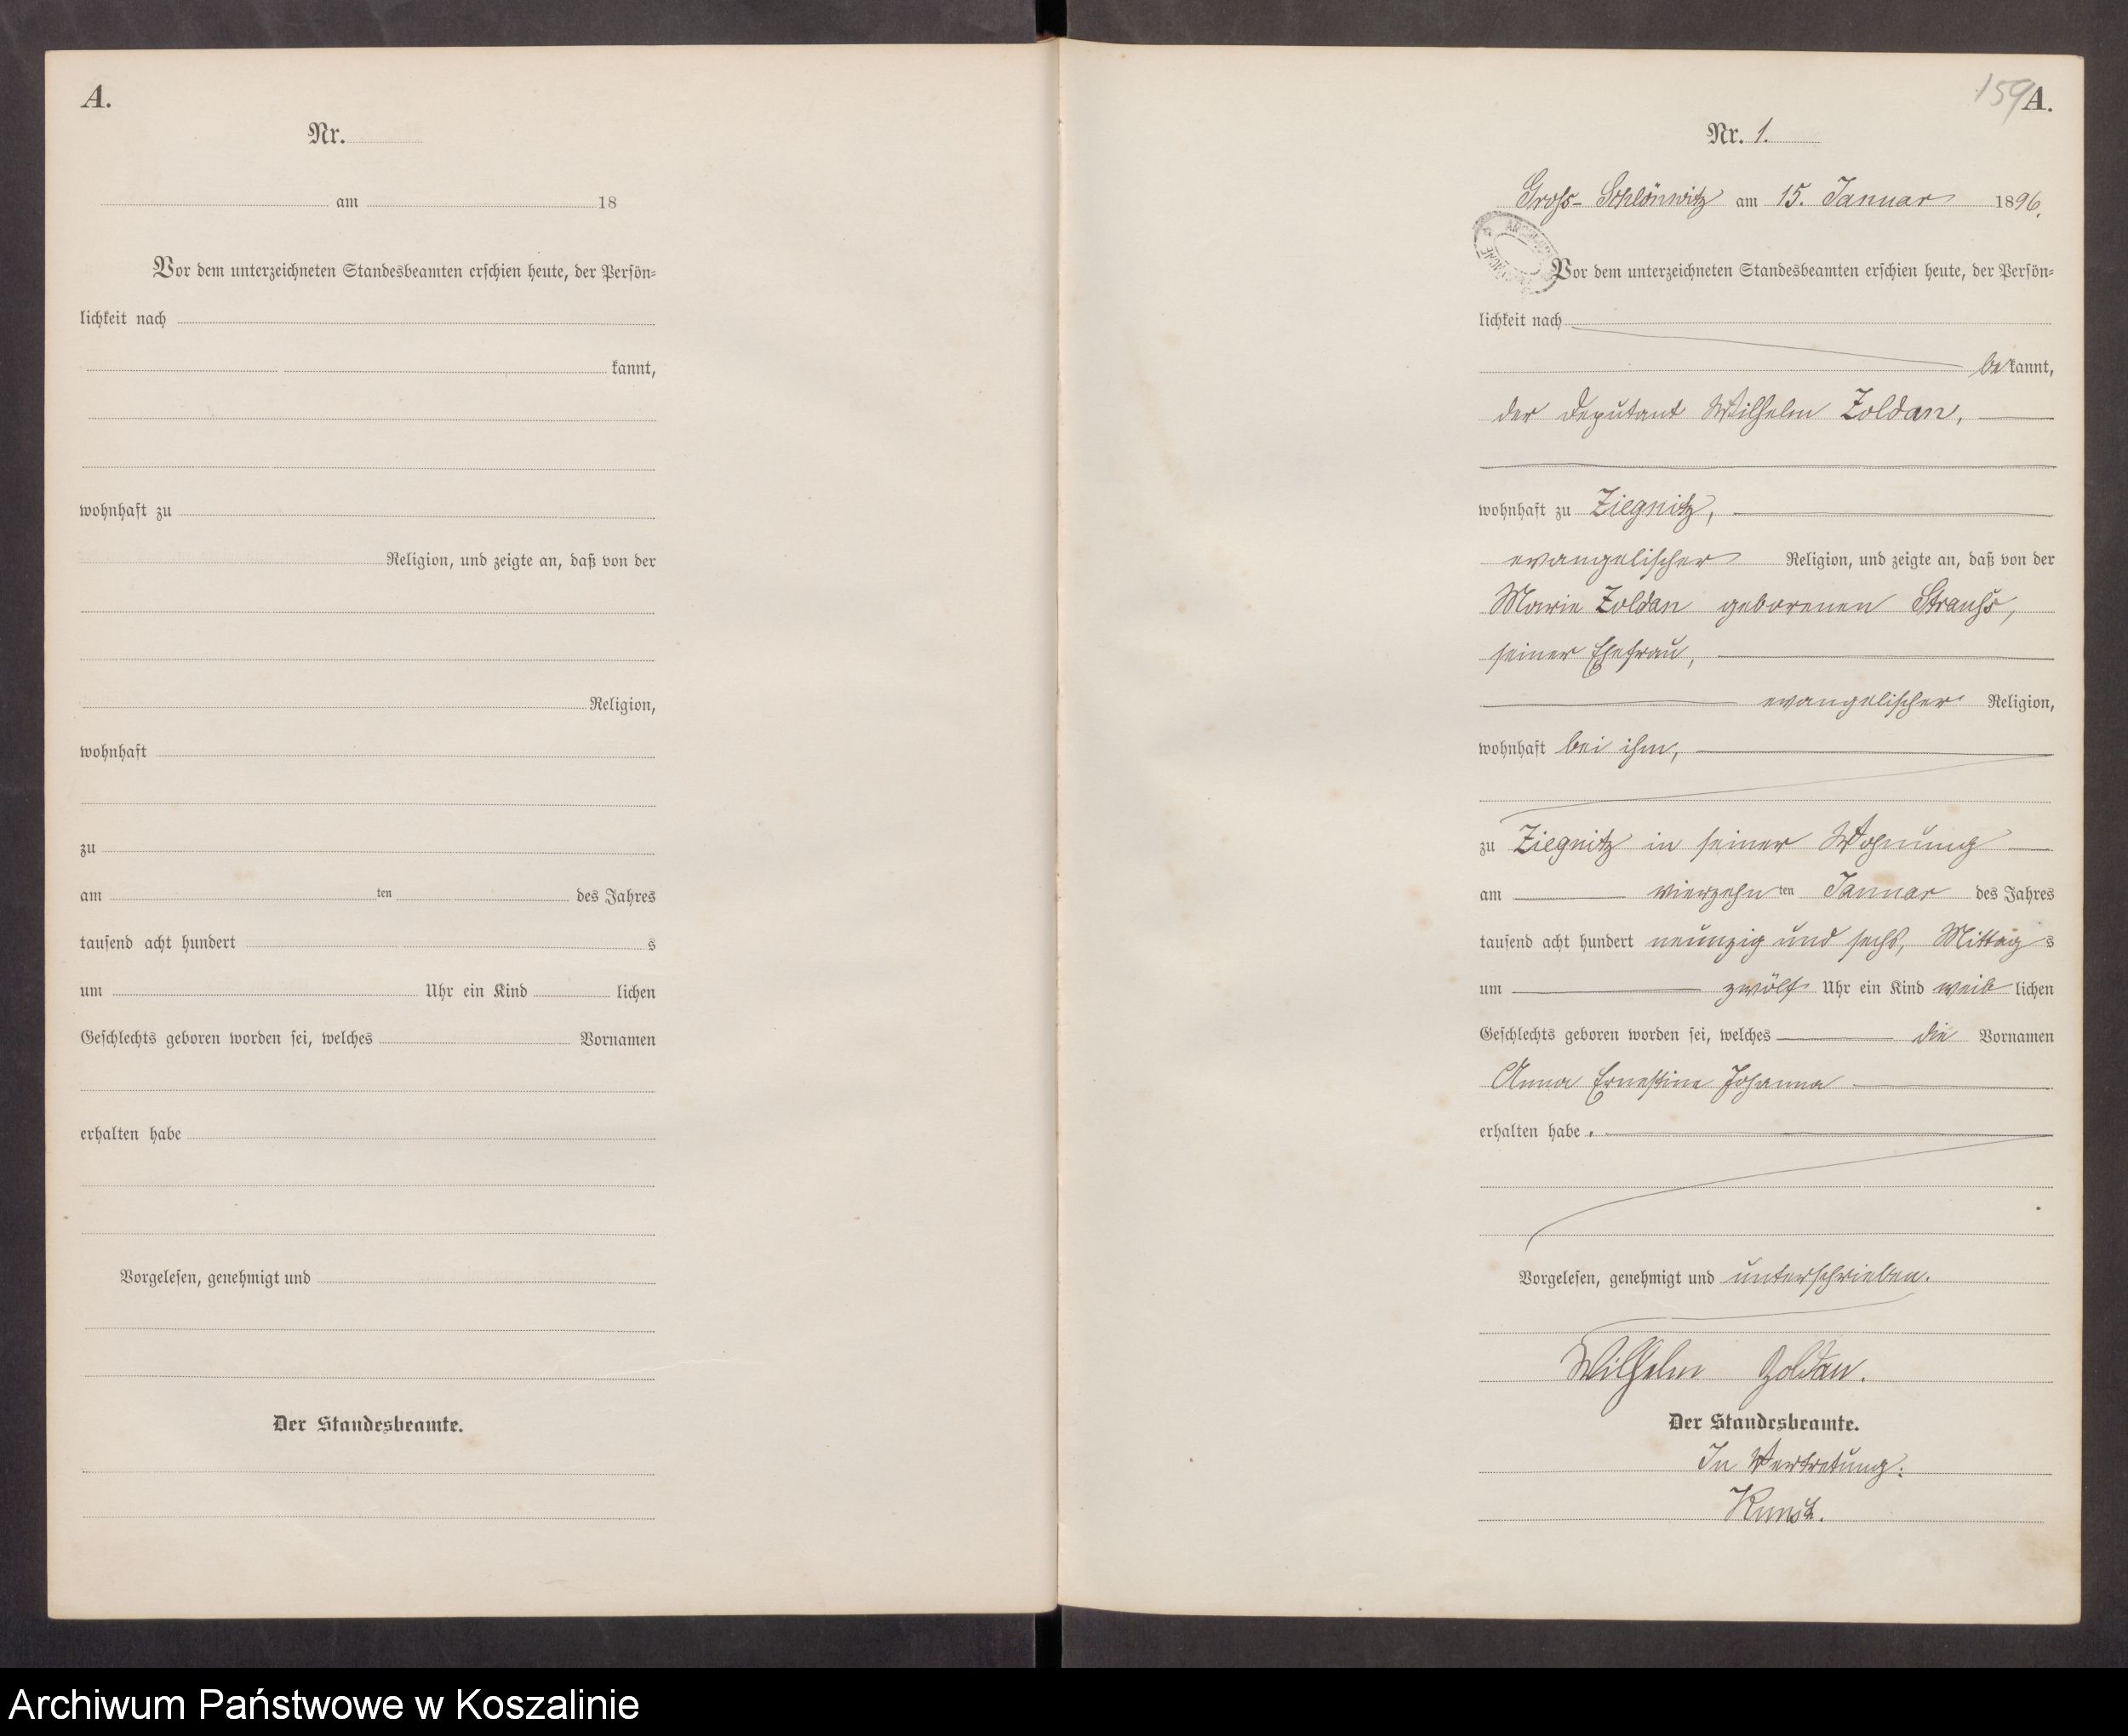 A.
Nr.
am 18
Vor dem unterzeichneten Standesbeamten erschien heute, der Persön-
lichkeit nach
kannt,
wohnhaft zu
Religion, und zeigte an, daß von der
Religion,
wohnhaft
zu
am ten des Jahres
tausend acht hundert s
um Uhr ein Kind lichen
Geschlechts geboren worden sei, welches Vornamen
erhalten habe
Vorgelesen, genehmigt und
Der Standesbeamte.
159 A.
Nr. 1.
Gross-Schlönwitz am 15. Januar 1896.
Vor dem unterzeichneten Standesbeamten erschien heute, der Persön-
lichkeit nach
bekannt,
der Deputant Wilhelm Zoldan,
wohnhaft zu Ziegnitz,
evangelischer Religion, und zeigte an, daß von der
Marie Zoldan geborenen Strauß,
seiner Ehefrau,
evangelischer Religion,
wohnhaft bei ihm,
zu Ziegnitz in seiner Wohnung
am vierzehn ten Januar des Jahres
tausend acht hundert neunzig und sechs, Mittags
um zwölf Uhr ein Kind weiblichen
Geschlechts geboren worden sei, welches die Vornamen
Anna Ernestine Johanna
erhalten habe.
Vorgelesen, genehmigt und unterschrieben.
Wilhelm Zoldan.
Der Standesbeamte.
In Vertretung:
Kunst.
Archiwum Państwowe w Koszalinie